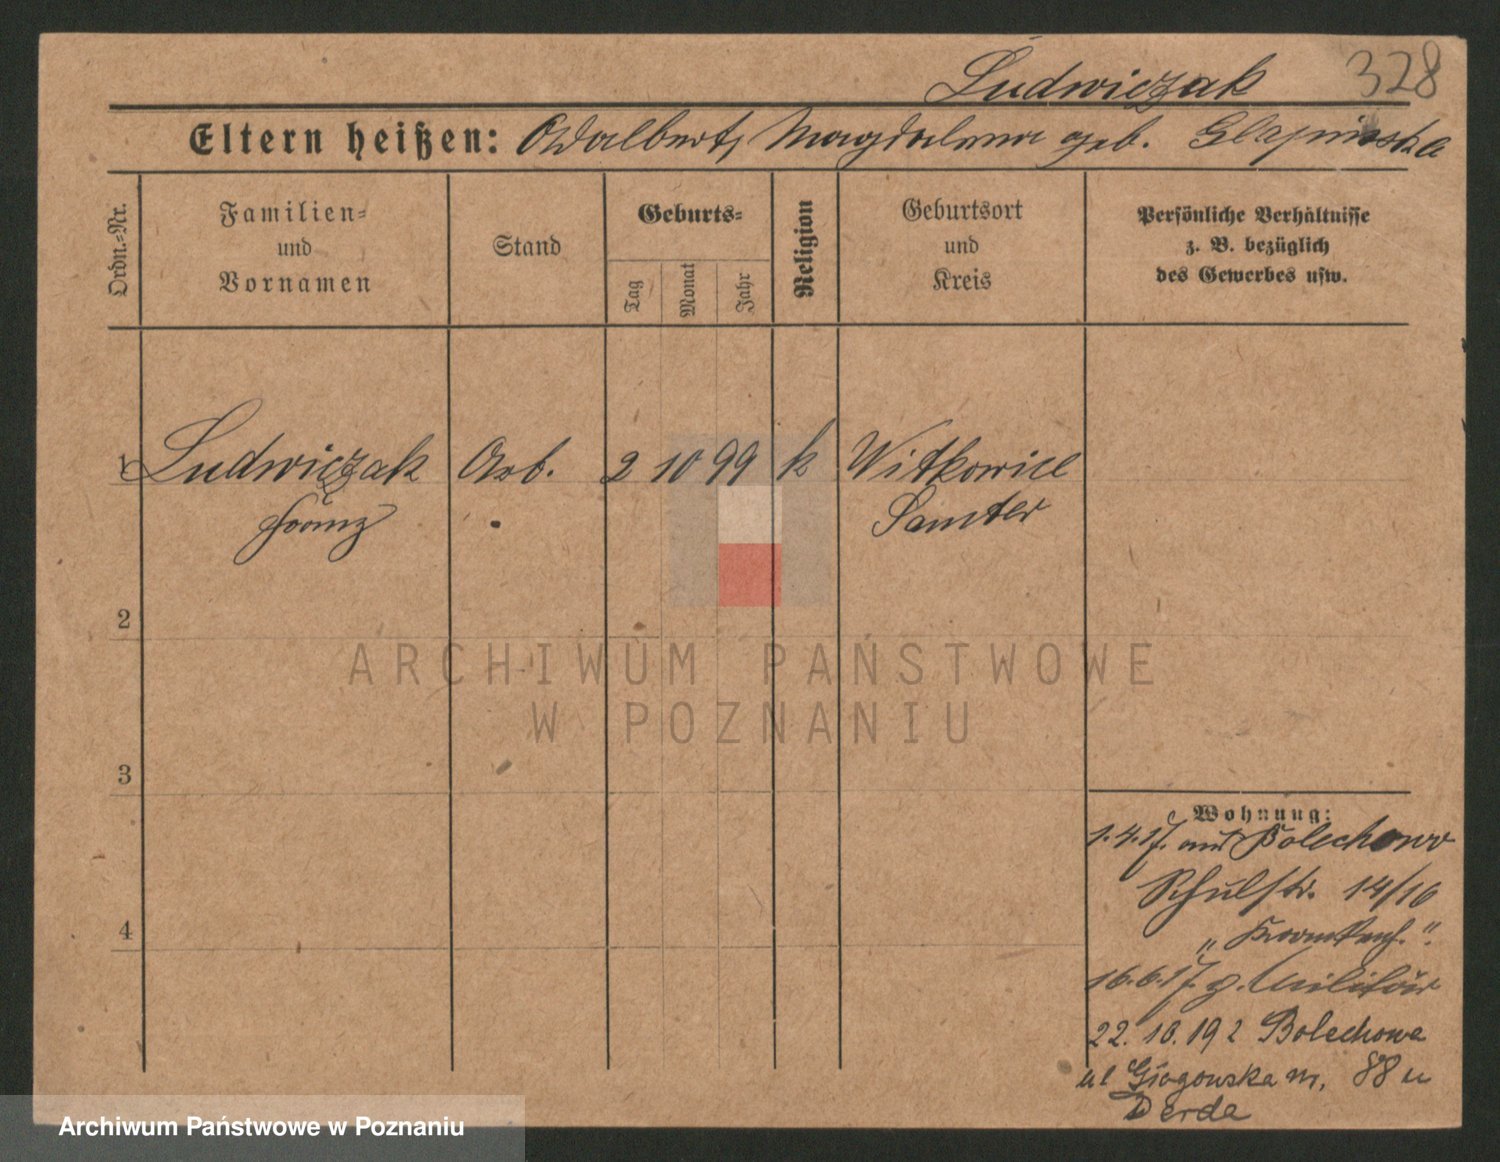 Ludwiczak 328
Eltern heißen: Adalbert, Magdalena geb. Glapinska
Ordn.-Nr.
Familien-
und
Vornamen
Stand
Geburts-
Tag
Monat
Jahr
Religion
Geburtsort
und
Kreis
Persönliche Verhältnisse
z. B. bezüglich
des Gewerbes usw.
1 Ludwiczak Arb. 2 10 99 k Witkowice
Franz Samter
2
ARCHIWUM PAŃSTWOWE
W POZNANIU
3
Wohnung:
1.4.17. aus Bolechowo
Schulstr. 14/16
„Krankenh.“
4
16.6.17. z. Militär
22.10.192 Bolechowa
ul Głogowska m. 88 u
Derda
Archiwum Państwowe w Poznaniu